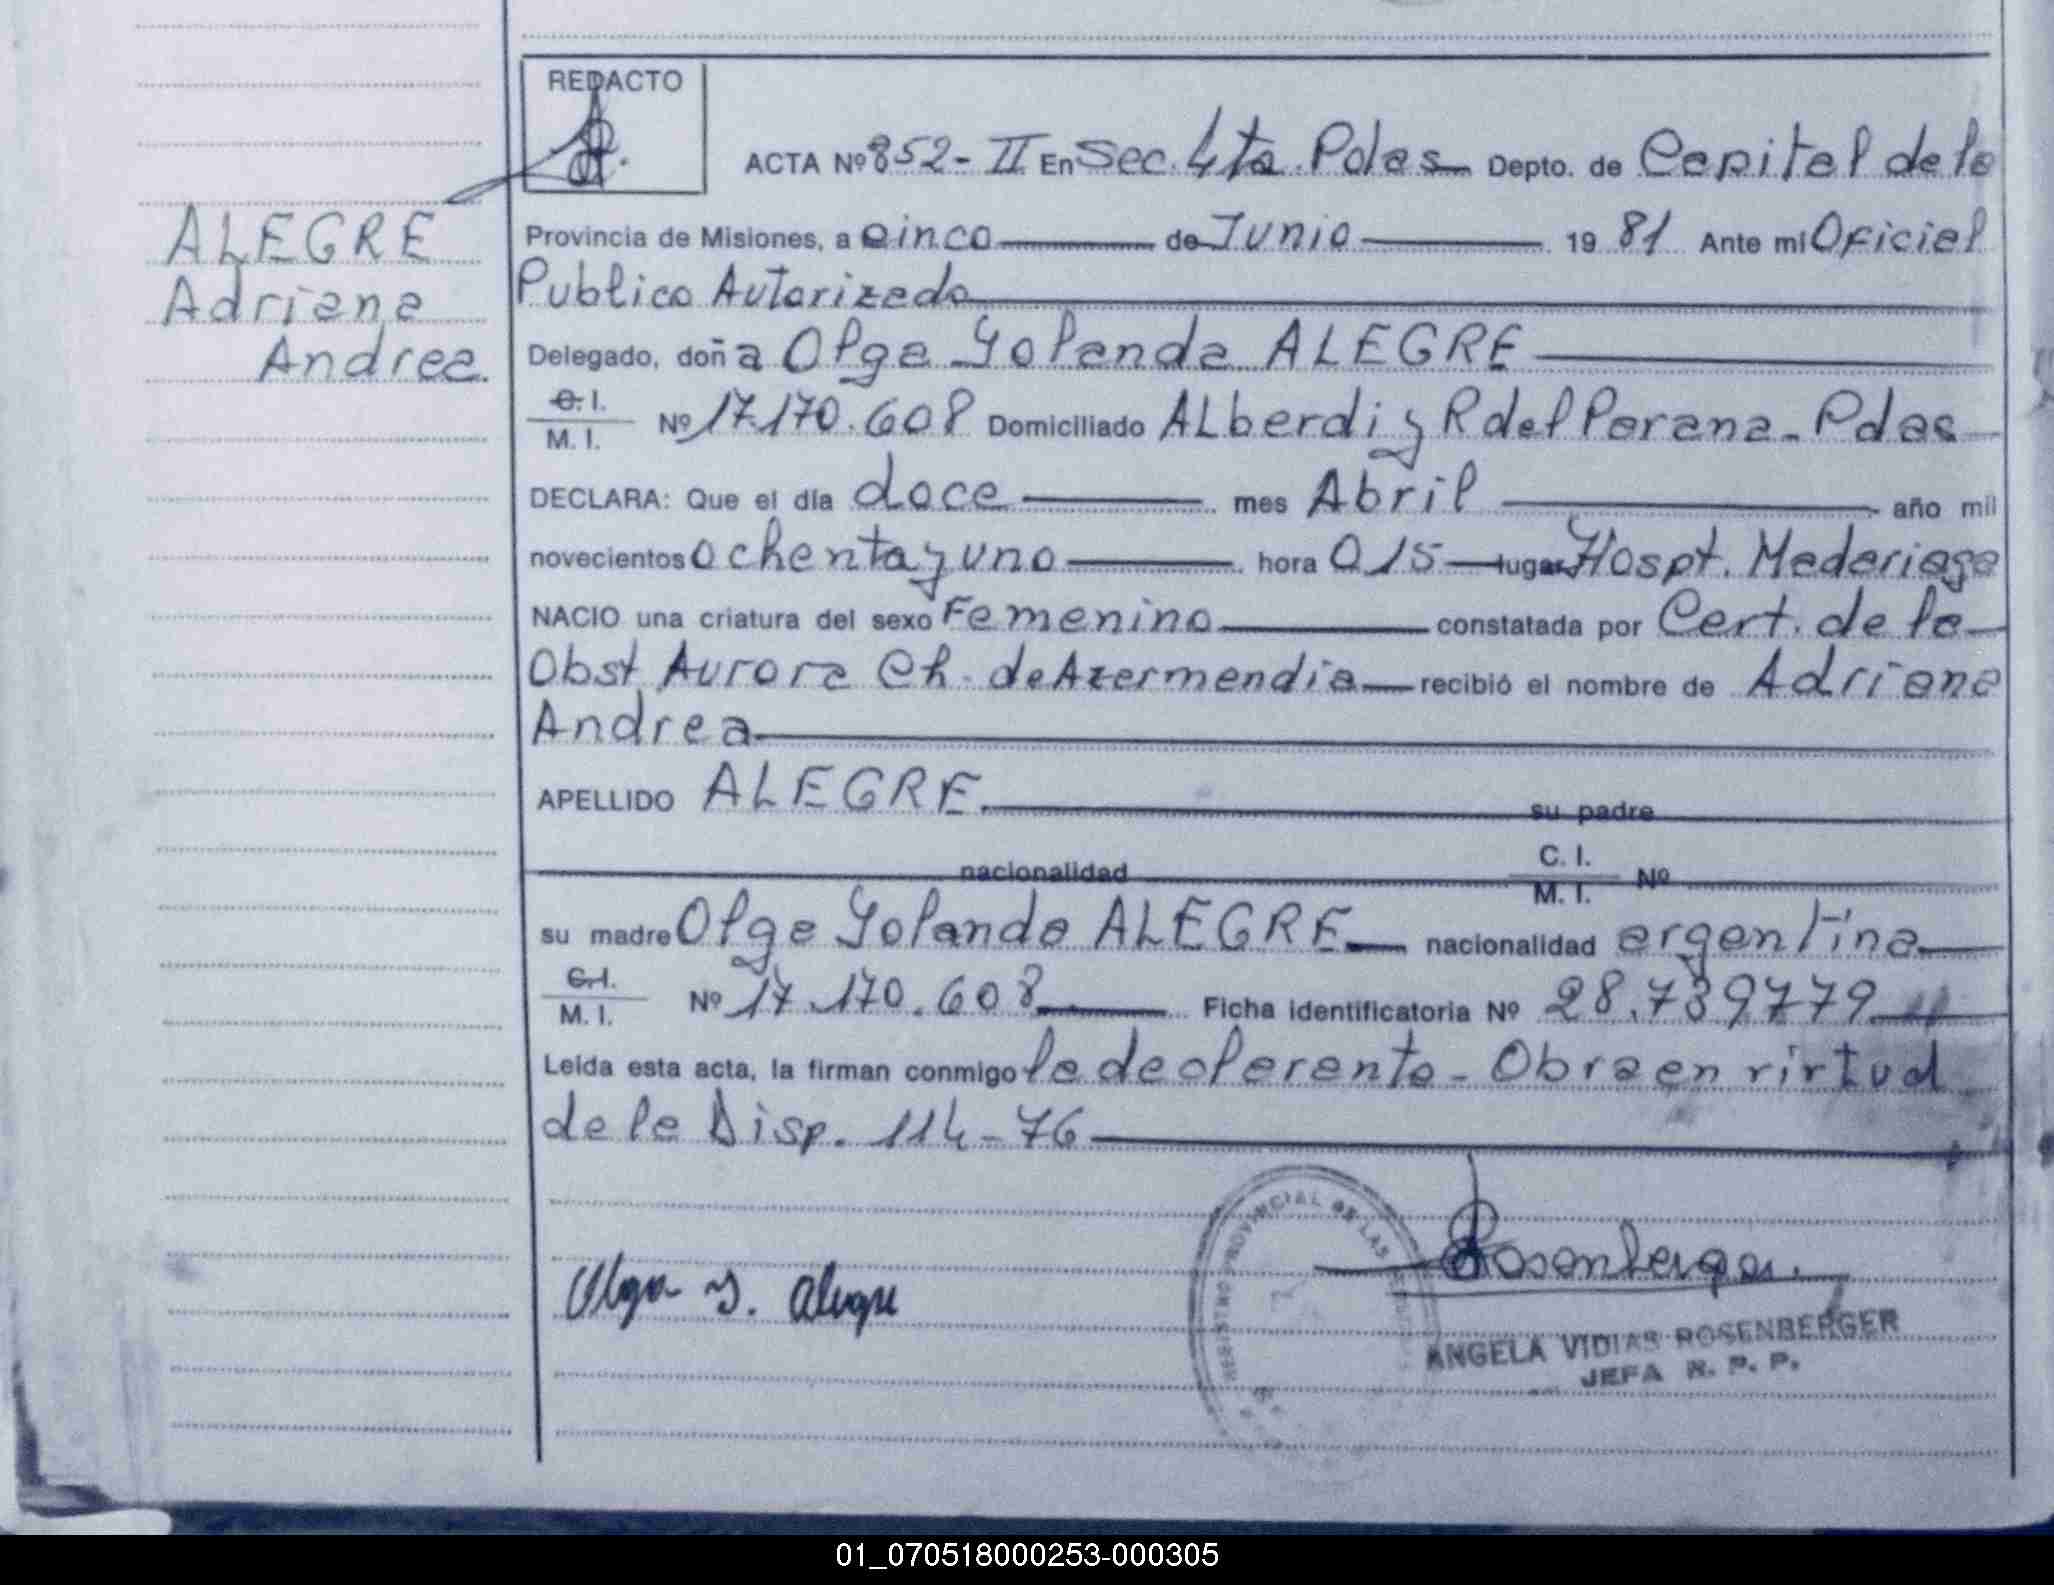 REDACTO
ACTA Nº 852-II En Sec. 4ta. Pdas Depto. de Capital de la
ALEGRE
Adriana
Andrea.
Provincia de Misiones, a cinco de Junio 19 81 Ante mi Oficial
Publico Autorizado
Delegado, doña Olga Yolanda ALEGRE
C. I.
M. I. Nº 17.170.608 Domiciliado ALberdi y R del Parana - Pdas
DECLARA: Que el día doce mes Abril año mil
novecientos ochenta y uno hora 0,15 lugar Hospt. Madariaga
NACIO una criatura del sexo Femenino constatada por Cert. de la
Obst Aurora Ch. de Azarmendia recibió el nombre de Adriana
Andrea
APELLIDO ALEGRE su padre
nacionalidad C. I.
M. I. Nº
su madre Olga Yolanda ALEGRE nacionalidad argentina
C. I.
M. I. Nº 17.170.608 Ficha identificatoria Nº 28.739779
Leída esta acta, la firman conmigo la declarante - Obra en virtud
de la Disp. 114-76
REGISTRO PROVINCIAL DE LAS
Rosenberger
Olga Y. Alegre
ANGELA VIDIAS ROSENBERGER
JEFA R. P. P.
01_070518000253-000305